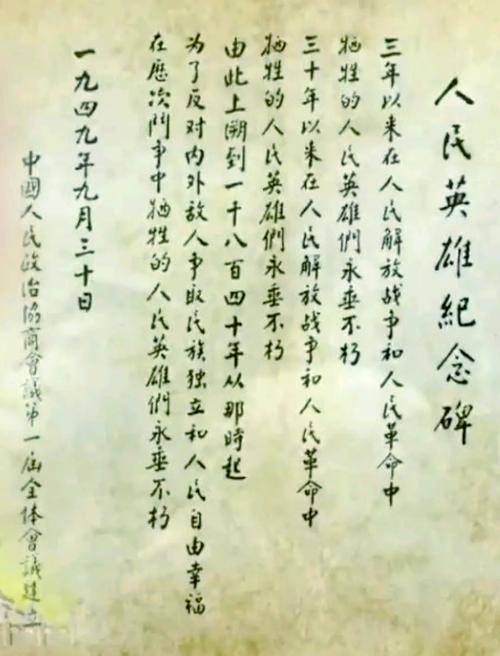 人民英雄紀念碑
三年以来在人民解放战争和人民革命中
牺牲的人民英雄們永垂不朽
三十年以来在人民解放战争和人民革命中
牺牲的人民英雄們永垂不朽
由此上溯到一千八百四十年从那時起
为了反对内外敌人争取民族独立和人民自由幸福
在歷次鬥争中牺牲的人民英雄們永垂不朽
一九四九年九月三十日
中國人民政治協商會議第一屆全体會議建立